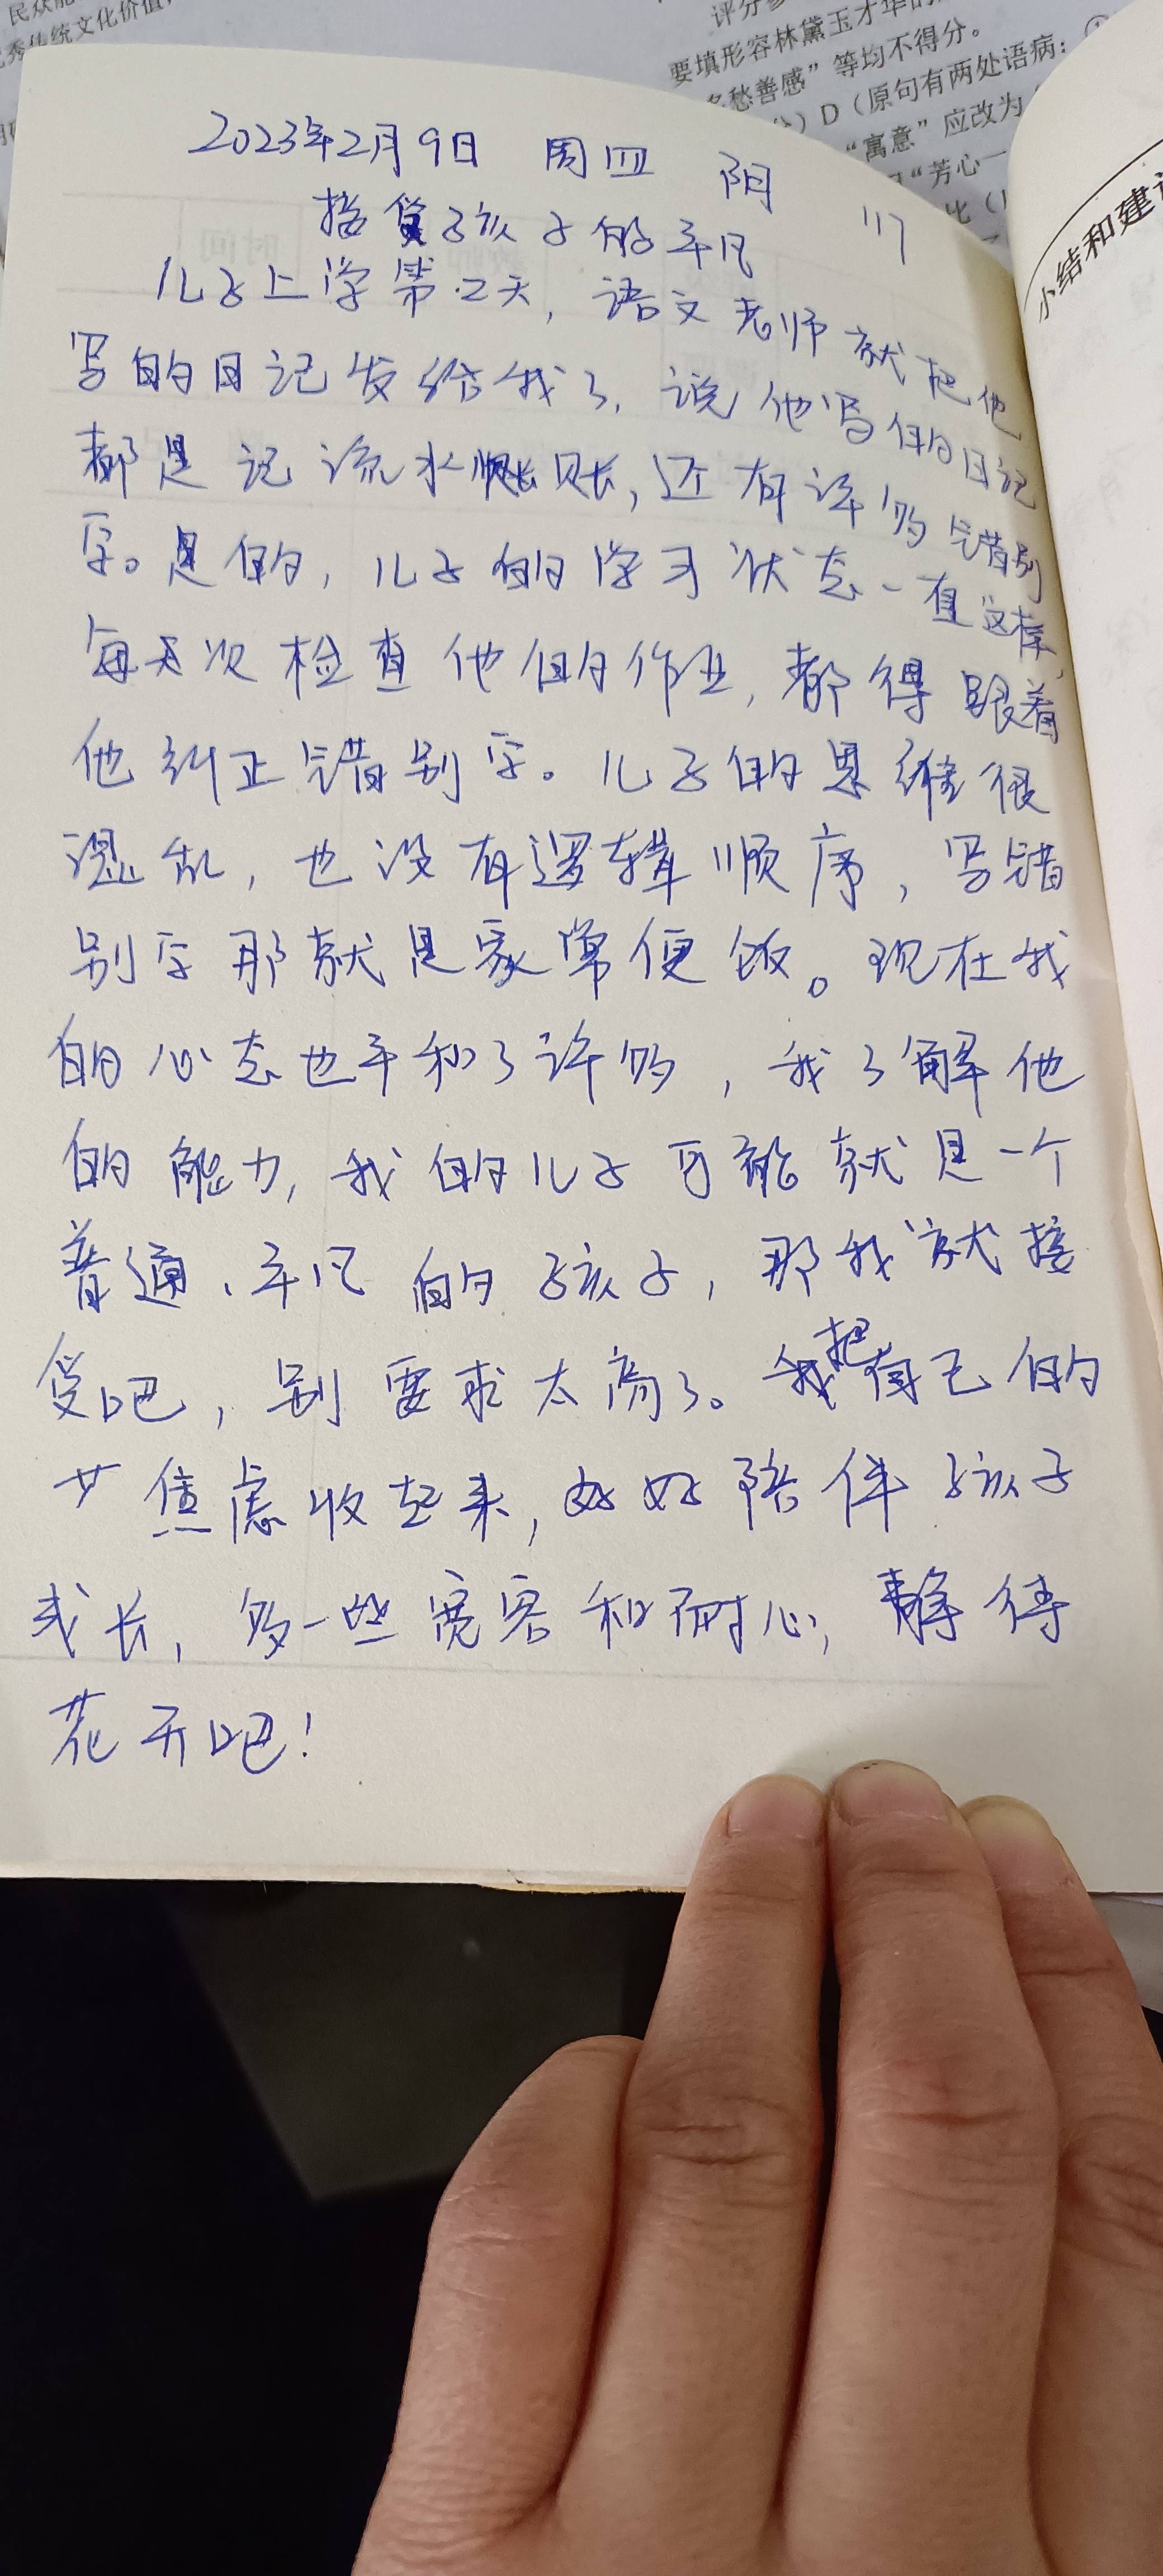 民众能
秀传统文化价值,
评分参
要填形容林黛玉才华的
多愁善感”等均不得分。
)D(原句有两处语病:①
“寓意”应改为
“芳心一
比(1
小结和建议
2023年2月9日 周四 阴 117
接受孩子的平凡
儿子上学第二天,语文老师就把他
写的日记发给我了,说他写的日记
都是记流水账,还有许多错别
字。是的,儿子的学习状态一直这样,
每次检查他的作业,都得跟着
他纠正错别字。儿子的思维很
混乱,也没有逻辑顺序,写错
别字那就是家常便饭。现在我
的心态也平和了许多,我了解他
的能力,我的儿子可能就是一个
普通、平凡的孩子,那我就接
受吧,别要求太高了。我把自己的
焦虑收起来,好好陪伴孩子
成长,多一些宽容和耐心,静待
花开吧!